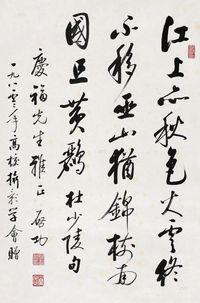 江上亦秋色火雲終
不移巫山猶錦樹南
國且黃鸝 杜少陵句
慶福先生雅正 啓功
一九八零年高校攝影学會贈